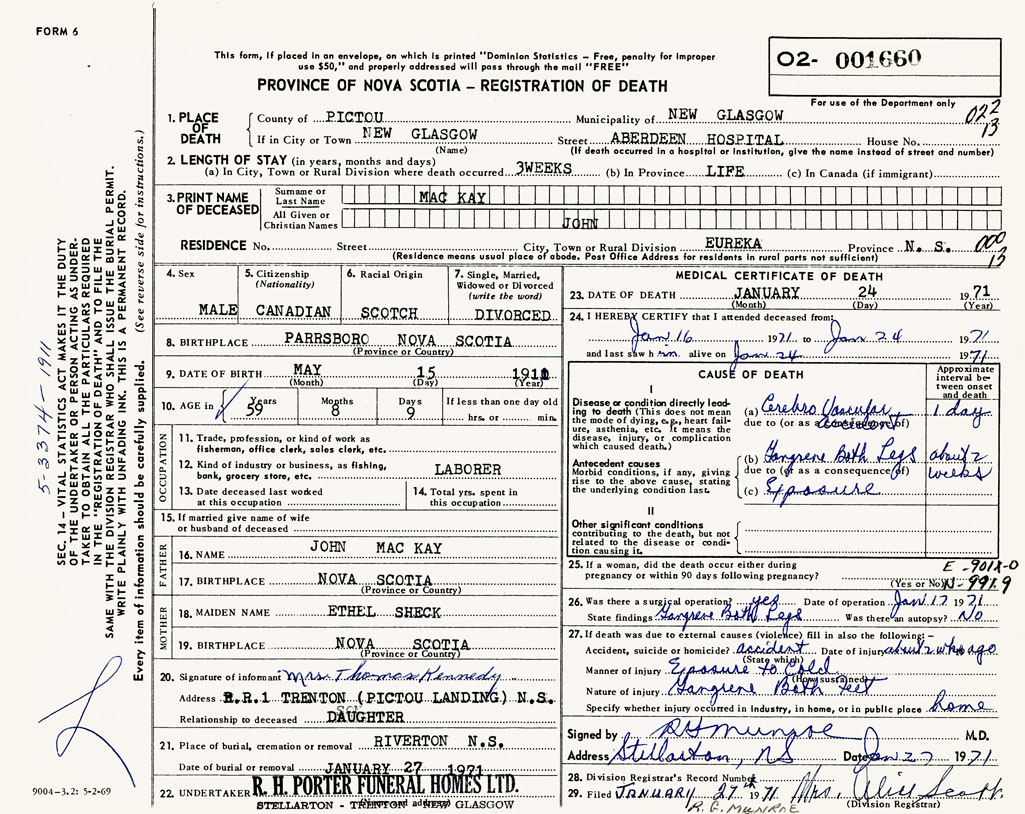 FORM 6
This form, if placed in an envelope, on which is printed "Dominion Statistics – Free, penalty for improper
use $50," and properly addressed will pass through the mail "FREE"
02- 001660
PROVINCE OF NOVA SCOTIA – REGISTRATION OF DEATH
For use of the Department only
022
13
1. PLACE OF DEATH
County of PICTOU Municipality of NEW GLASGOW
If in City or Town NEW GLASGOW Street ABERDEEN HOSPITAL House No.
(Name) (If death occurred in a hospital or Institution, give the name instead of street and number)
2. LENGTH OF STAY (in years, months and days)
(a) In City, Town or Rural Division where death occurred 3WEEKS (b) In Province LIFE (c) In Canada (if immigrant)
3. PRINT NAME OF DECEASED
Surname or Last Name MAC KAY
All Given or Christian Names JOHN
RESIDENCE No. Street City, Town or Rural Division EUREKA Province N. S.
000
13
(Residence means usual place of abode. Post Office Address for residents in rural parts not sufficient)
4. Sex MALE
5. Citizenship (Nationality) CANADIAN
6. Racial Origin SCOTCH
7. Single, Married, Widowed or Divorced (write the word) DIVORCED
8. BIRTHPLACE PARRSBORO NOVA SCOTIA
(Province or Country)
9. DATE OF BIRTH MAY 15 1911
(Month) (Day) (Year)
10. AGE in Years 59 Months 8 Days 9 If less than one day old
hrs. or min.
OCCUPATION
11. Trade, profession, or kind of work as
fisherman, office clerk, sales clerk, etc.
12. Kind of industry or business, as fishing,
bank, grocery store, etc. LABORER
13. Date deceased last worked
at this occupation
14. Total yrs. spent in
this occupation
15. If married give name of wife
or husband of deceased
FATHER
16. NAME JOHN MAC KAY
17. BIRTHPLACE NOVA SCOTIA
(Province or Country)
MOTHER
18. MAIDEN NAME ETHEL SHECK
19. BIRTHPLACE NOVA SCOTIA
(Province or Country)
20. Signature of informant Mrs. Thomas Kennedy
Address R.R.1 TRENTON (PICTOU LANDING) N.S.
Relationship to deceased DAUGHTER
21. Place of burial, cremation or removal RIVERTON N.S.
Date of burial or removal JANUARY 27 1971
22. UNDERTAKER R. H. PORTER FUNERAL HOMES LTD.
STELLARTON - TRENTON - NEW GLASGOW
MEDICAL CERTIFICATE OF DEATH
23. DATE OF DEATH JANUARY 24 1971
(Month) (Day) (Year)
24. I HEREBY CERTIFY that I attended deceased from:
Jan 16 1971 to Jan 24 1971
and last saw h im alive on Jan 24 1971
CAUSE OF DEATH
Approximate interval between onset and death
I
Disease or condition directly leading to death (This does not mean the mode of dying, e.g., heart failure, asthenia, etc. It means the disease, injury, or complication which caused death.)
(a) Cerebro Vascular accident 1 day
due to (or as a consequence of)
Antecedent causes
Morbid conditions, if any, giving rise to the above cause, stating the underlying condition last.
(b) Gangrene Both Legs about 2 weeks
due to (or as a consequence of)
(c) Exposure
II
Other significant conditions
contributing to the death, but not related to the disease or condition causing it.
25. If a woman, did the death occur either during
pregnancy or within 90 days following pregnancy?
(Yes or No)
E-901X-0
N-991.9
26. Was there a surgical operation? yes Date of operation Jan 17 1971
State findings Gangrene Both Legs Was there an autopsy? No
27. If death was due to external causes (violence) fill in also the following:–
Accident, suicide or homicide? accident Date of injury about 2 wks ago
(State which)
Manner of injury Exposure to Cold
(How sustained)
Nature of injury Gangrene Both feet
Specify whether injury occurred in industry, in home, or in public place home
Signed by R H Munroe M.D.
Address Stellarton, NS Date Jan 27 1971
28. Division Registrar's Record Number
29. Filed JANUARY 27th 1971 Mrs. Alice Scott
(Division Registrar)
R. G. MUNROE
SEC. 14 – VITAL STATISTICS ACT MAKES IT THE DUTY
OF THE UNDERTAKER OR PERSON ACTING AS UNDER-
TAKER TO OBTAIN ALL THE PARTICULARS REQUIRED
IN THE "REGISTRATION OF DEATH" AND TO FILE THE
SAME WITH THE DIVISION REGISTRAR WHO SHALL ISSUE THE BURIAL PERMIT.
WRITE PLAINLY WITH UNFADING INK. THIS IS A PERMANENT RECORD.
Every item of information should be carefully supplied. (See reverse side for instructions.)
5-3374-1911
9004-3.2: 5-2-69